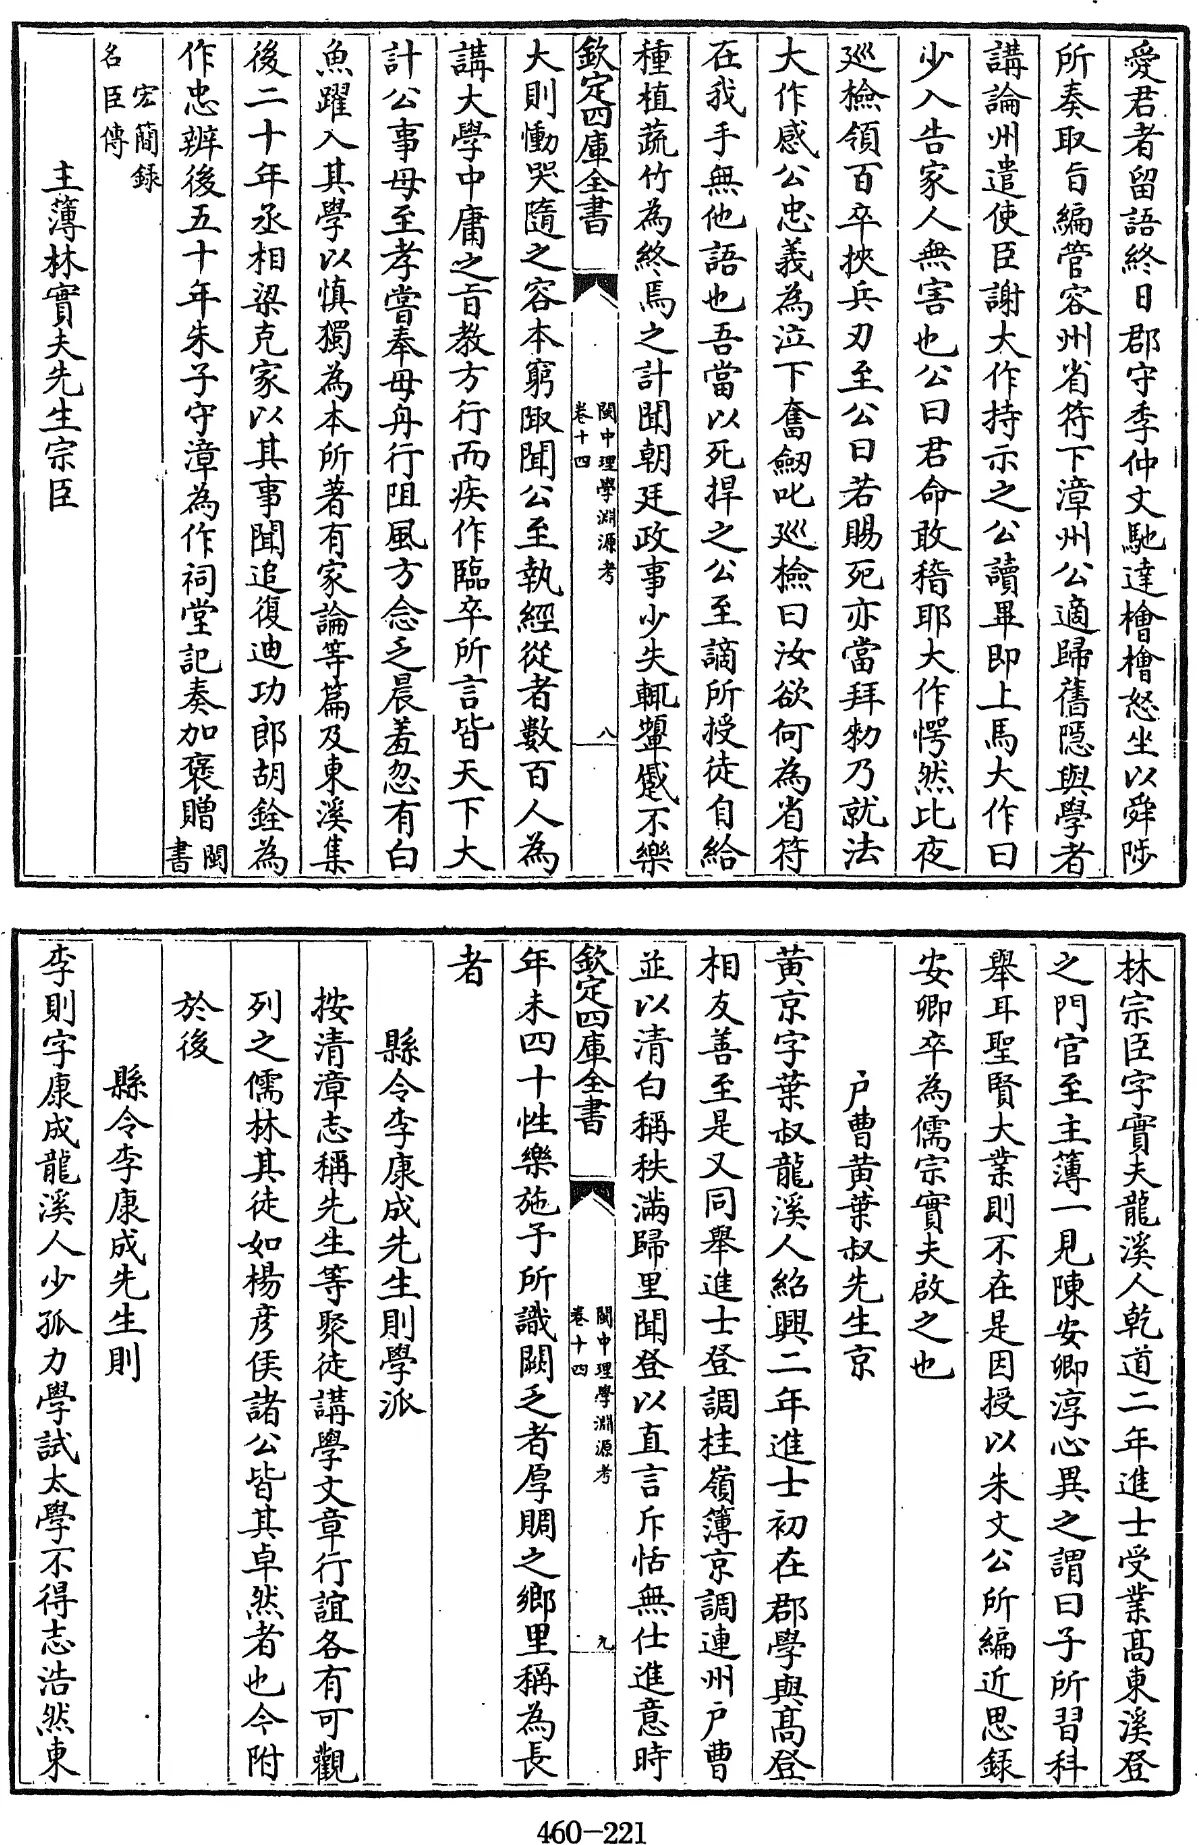 愛君者留語終日郡守季仲文馳達檜檜怒坐以舜陟
所奏取旨編管容州省符下漳州公適歸舊隱與學者
講論州遣使臣謝大作持示之公讀畢即上馬大作曰
少入告家人無害也公曰君命敢稽耶大作愕然比夜
巡檢領百卒挾兵刃至公曰若賜死亦當拜勑乃就法
大作感公忠義為泣下奮劒叱巡檢曰汝欲何為省符
在我手無他語也吾當以死捍之公至謫所授徒自給
種植蔬竹為終焉之計聞朝廷政事少失輒顰蹙不樂
欽定四庫全書
閩中理學淵源考
卷十四
八
大則慟哭隨之容本窮陬聞公至執經從者數百人為
講大學中庸之旨教方行而疾作臨卒所言皆天下大
計公事母至孝嘗奉母舟行阻風方念乏晨羞忽有白
魚躍入其學以慎獨為本所著有家論等篇及東溪集
後二十年丞相梁克家以其事聞追復迪功郎胡銓為
作忠辨後五十年朱子守漳為作祠堂記奏加褒贈閩書
宏簡錄
名臣傳
主薄林實夫先生宗臣
林宗臣字實夫龍溪人乾道二年進士受業髙東溪登
之門官至主簿一見陳安卿淳心異之謂曰子所習科
舉耳聖賢大業則不在是因授以朱文公所編近思錄
安卿卒為儒宗實夫啟之也
戶曹黄葉叔先生京
黄京字葉叔龍溪人紹興二年進士初在郡學與髙登
相友善至是又同舉進士登調桂嶺簿京調連州戶曹
並以清白稱秩滿歸里聞登以直言斥恬無仕進意時
欽定四庫全書
閩中理學淵源考
卷十四
九
年未四十性樂施予所識闕乏者厚賙之鄉里稱為長
者
縣令李康成先生則學派
按清漳志稱先生等聚徒講學文章行誼各有可觀
列之儒林其徒如楊彥侯諸公皆其卓然者也今附
於後
縣令李康成先生則
李則字康成龍溪人少孤力學試太學不得志浩然東
460-221